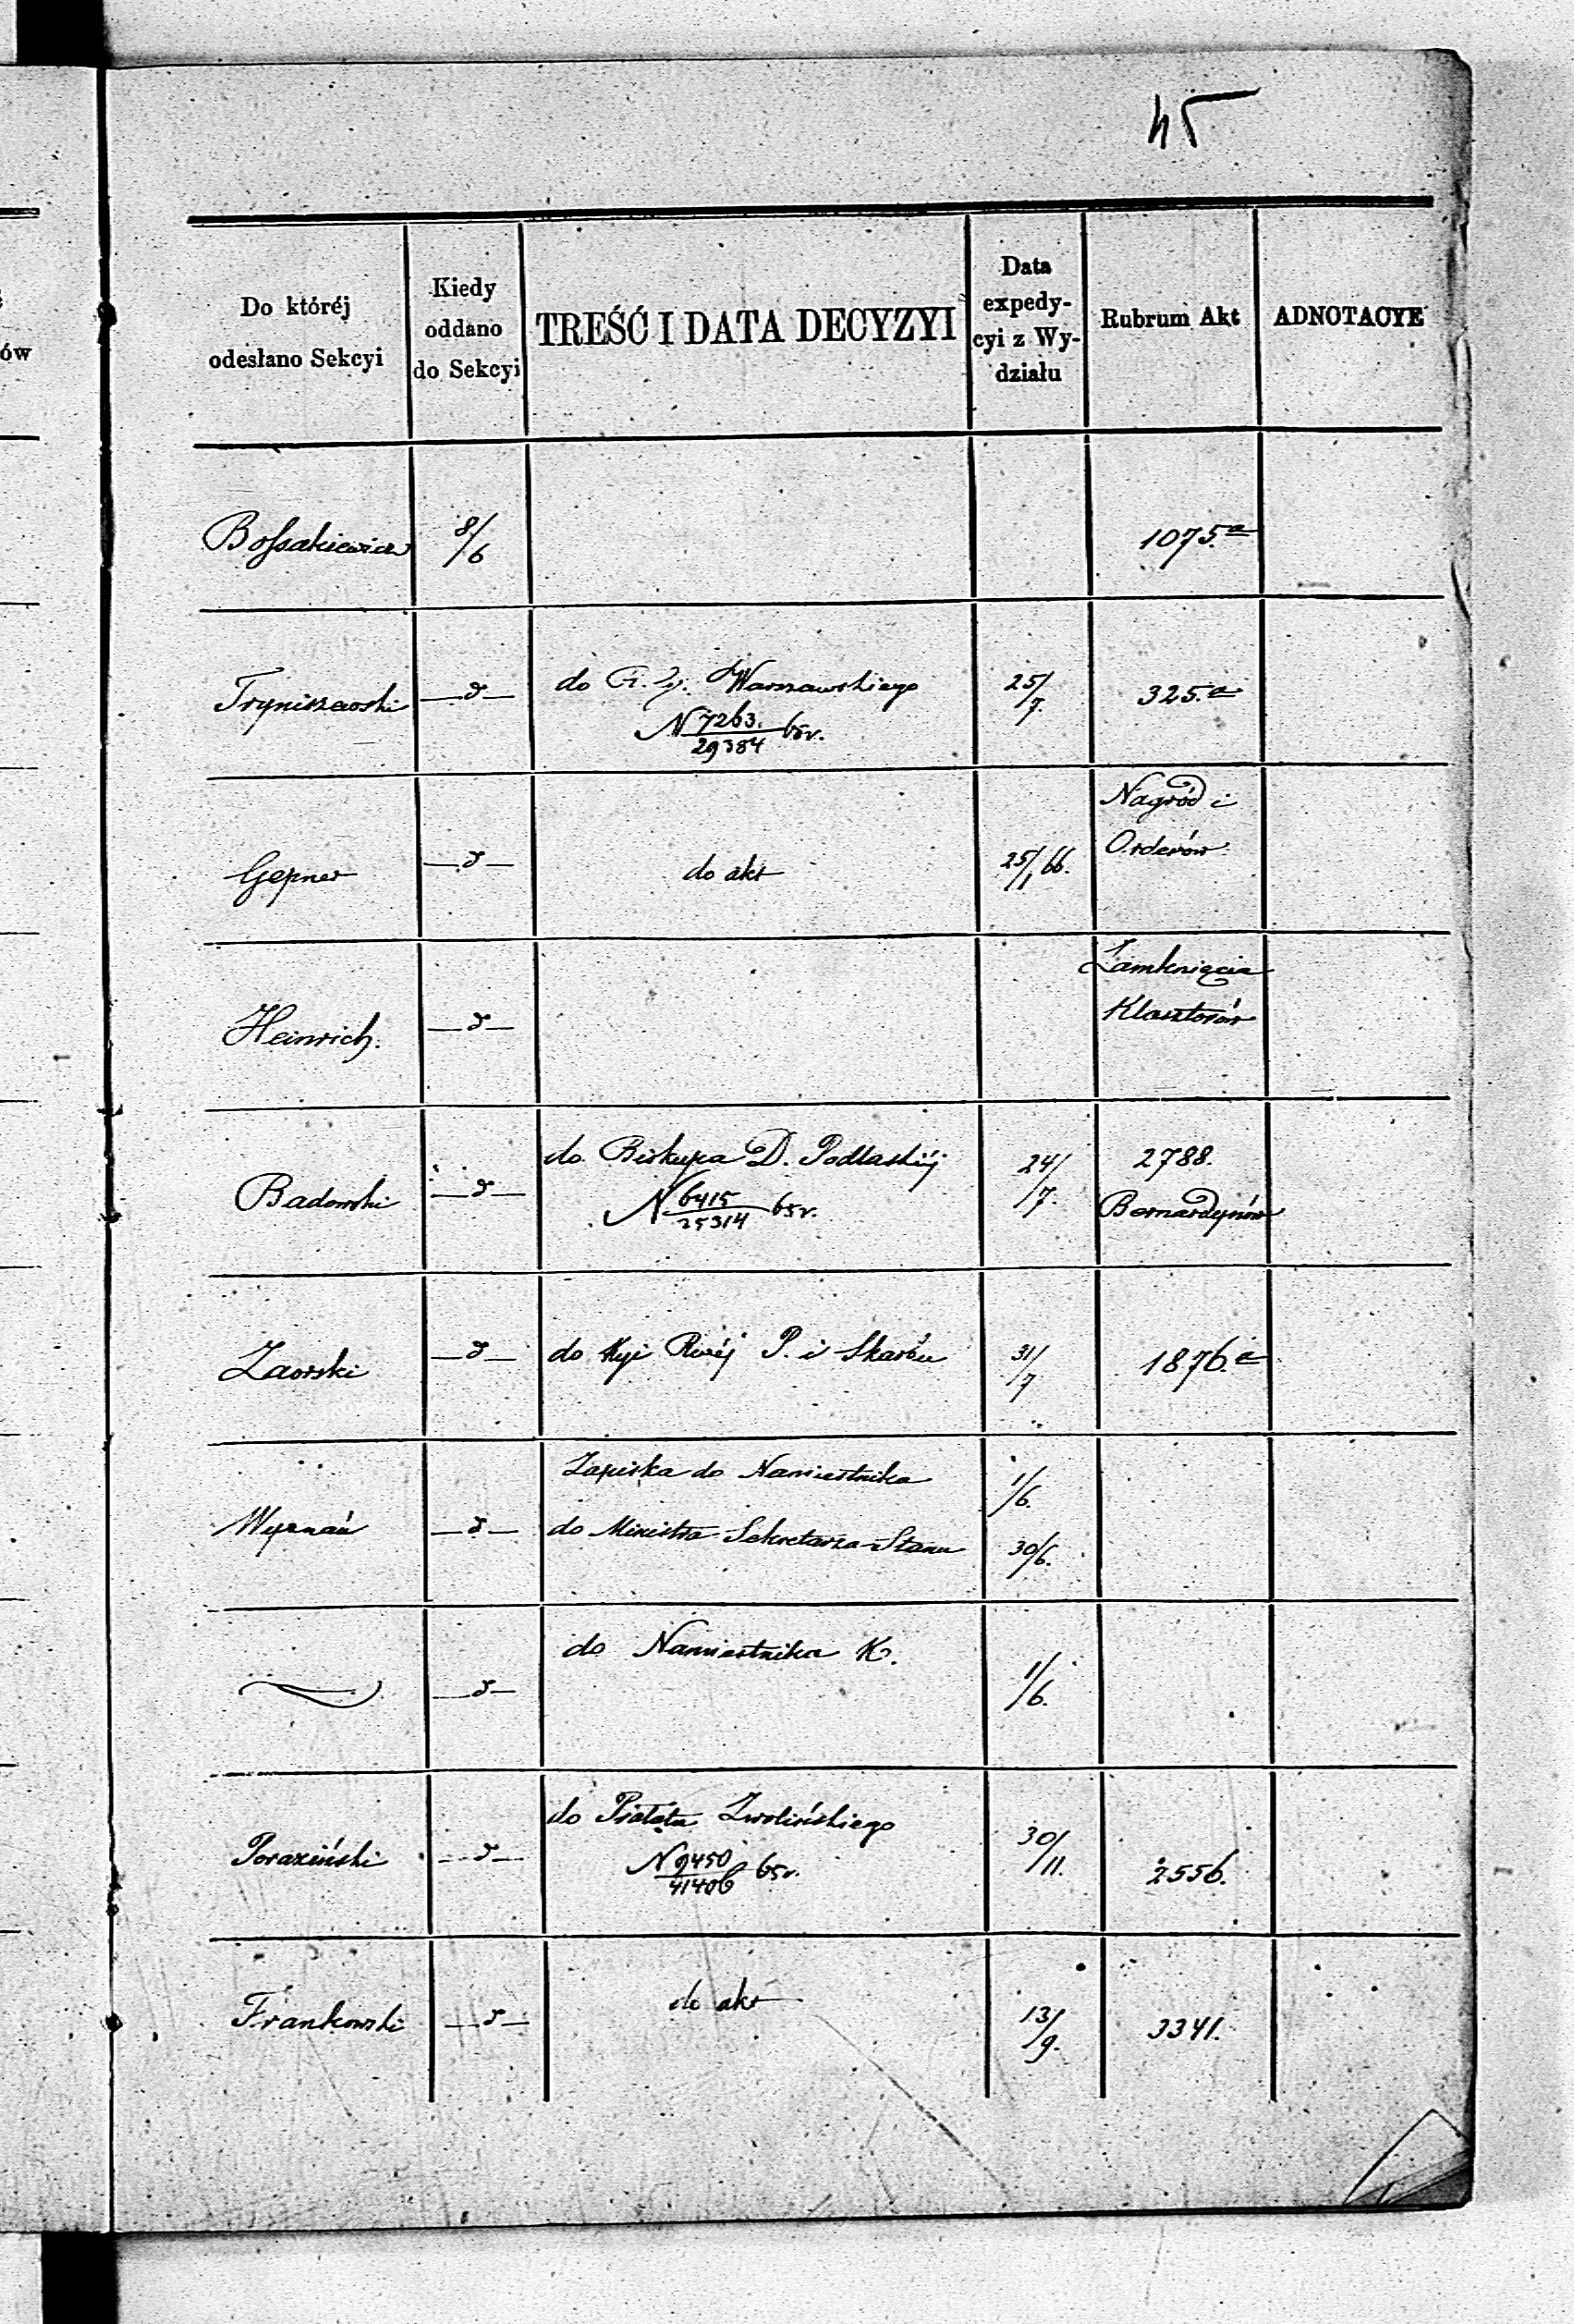 45
ów
Do któréj
odesłano Sekcyi
Kiedy
oddano
do Sekcyi
TREŚĆ I DATA DECYZYI
Data
expedy-
cyi z Wy-
działu
Rubrum Akt
ADNOTACYE
Bossakiewicz 8/6 1075.a
Tryniszewski —d— do G. Warszawskiego 25/7. 325.a
N 7263./29384 65r.
Gepner —d— do akt 25/1 66. Nagród i
Orderów
Heinrich. —d— Zamknięcia
Klasztorów
Badowski —d— do Biskupa D. Podlaskiéj 24/7. 2788.
N 6415/25314 65r. Bernardynów
Zaorski —d— do Kyi P. i Skarbu 31/7 1876.a
Zapiska do Namiestnika 1/6.
—d— do Ministra Sekretarza Stanu 30/6.
—d— do Namiestnika K. 1/6.
do Zwolińskiego
Poraziński —d— N 9450/41406 65r. 30/11. 2556.
Frankowski —d— do akt 13/9. 3341.